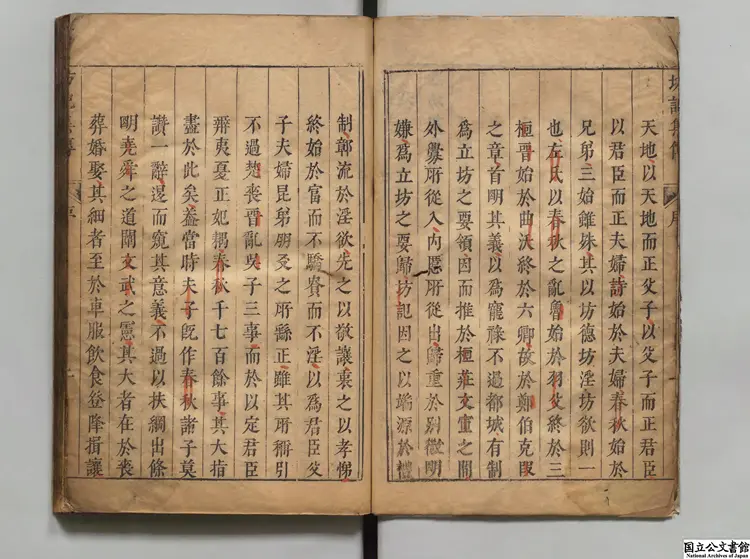 天地以天地而正父子以父子而正君臣
以君臣而正夫婦詩始於夫婦春秋始於
兄弟三始雖殊其以坊德坊淫坊欲則一
也左氏以春秋之亂魯始於羽父終於三
桓晉始於曲沃終於六卿故於鄭伯克段
之章首明其義以為寵祿不過都城有制
為立坊之要領因而推於桓莊文宣之間
外釁所從入內慝所從出歸重於別微明
嫌為立坊之要歸坊記因之以端源於禮
制鄣流於淫欲先之以敬讓衷之以孝悌
終始於富而不驕貴而不淫以為君臣父
子夫婦昆弟朋友之所繇正雖其所稱引
不過楚喪晉亂吳子三事而於以定君臣
辨夷夏正妃耦春秋千七百餘事其大指
盡於此矣蓋當時夫子既作春秋諸子莫
讚一辭退而窺其意義不過以扶綱出條
明堯舜之道闡文武之憲其大者在於喪
葬婚娶其細者至於車服飲食登降揖讓
坊記集傳
序
国立公文書館
National Archives of Japan